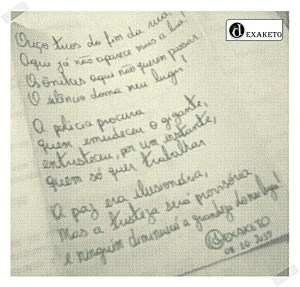 d EXAKETO
Ouço tiros do fim da rua!
Aqui já não aparece mais a lua!
Os ônibus aqui não querem passar
O silêncio doma meu lugar!
A polícia procura
quem emudeceu o gigante,
entristeceu, por um instante,
quem só quer trabalhar
A paz era ilusionária,
Mas a tristeza será provisória
e ninguém diminuirá a grandeza do meu lugar!
@dexaketo